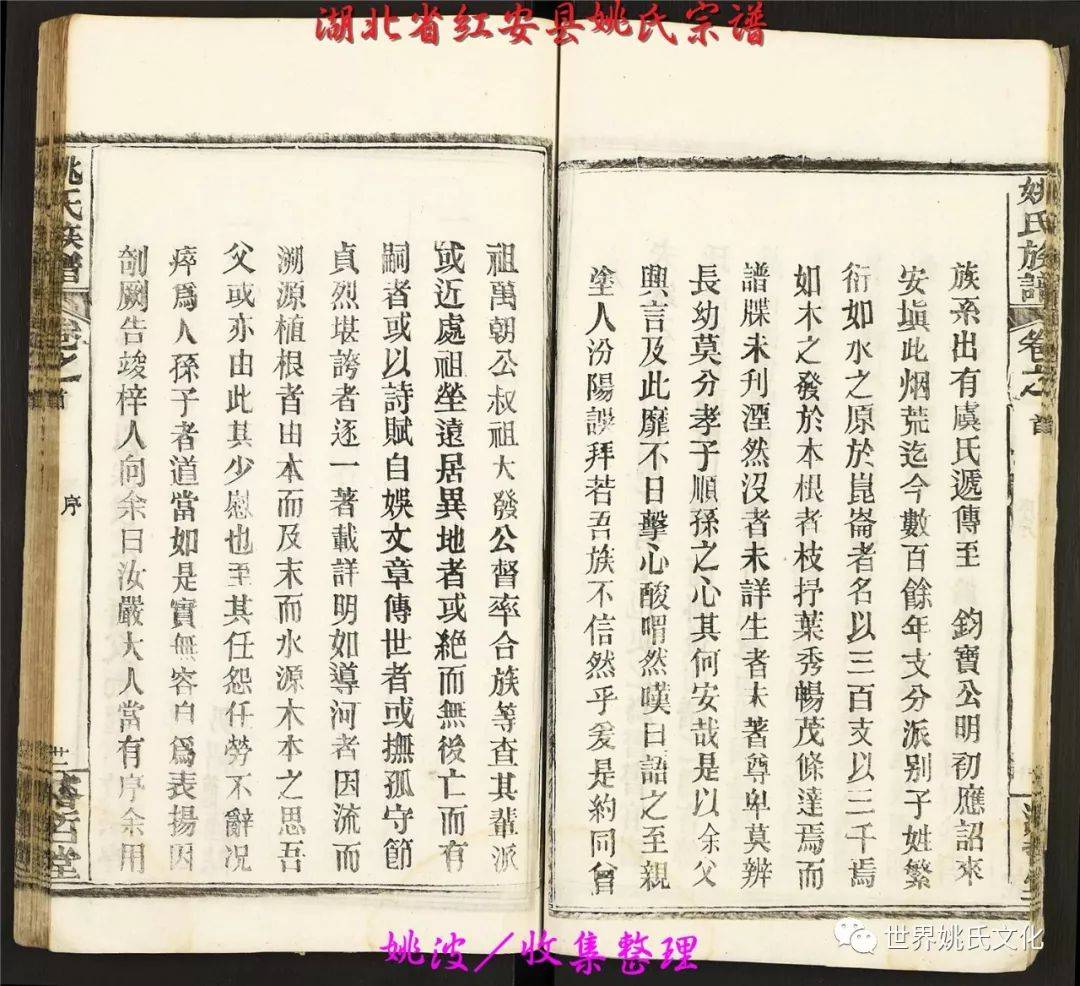 湖北省红安县姚氏宗谱
姚氏族譜
卷之首
族系出有虞氏遞傳至　鈞寶公明初應詔來
安塡此烟荒迄今數百餘年支分派别子姓繁
衍如水之原於崑崙者名以三百支以三千焉
如木之發於本根者枝抒葉秀暢茂條達焉而
譜牒未刋湮然沒者未詳生者未著尊卑莫辨
長幼莫分孝子順孫之心其何安哉是以余父
興言及此靡不日擊心酸喟然嘆曰語之至親
塗人汾陽誤拜若吾族不信然乎爰是約同曾
祖萬朝公叔祖大發公督率合族等查其輩派
或近處祖坐遠居異地者或絶而無後亡而有
嗣者或以詩賦自娛文章傳世者或撫孤守節
貞烈堪誇者逐一著載詳明如導河者因流而
溯源植根者由本而及末而水源木本之思吾
父或亦由此其少慰也至其任怨任勞不辭况
瘁爲人孫子者道當如是實無容自爲表揚因
剞劂告竣梓人向余曰汝嚴大人當有序余用
姚氏族譜
卷之首
序
廿
睿哲堂
姚波／收集整理
世界姚氏文化